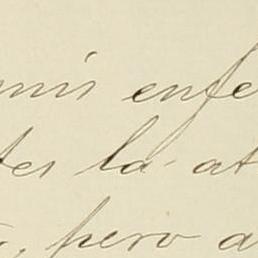 mis enfe
tes la at
, pero a